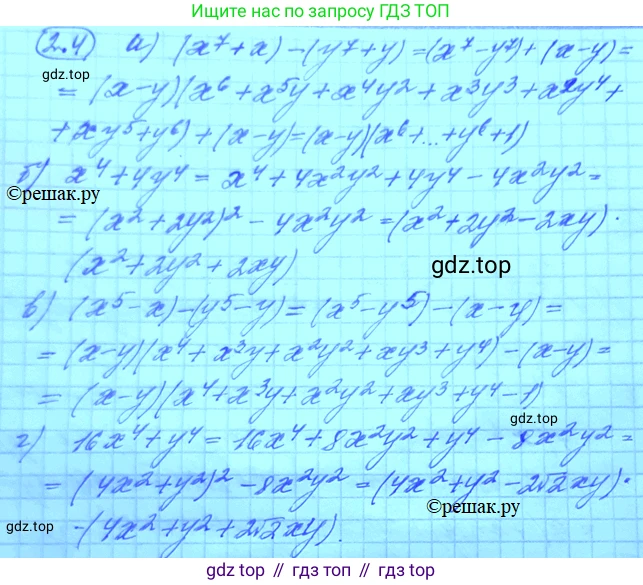 Ищите нас по запросу ГДЗ ТОП
2.4 а) (x⁷+x)-(y⁷+y)=(x⁷-y⁷)+(x-y)=
=(x-y)(x⁶+x⁵y+x⁴y²+x³y³+x²y⁴+
+xy⁵+y⁶)+(x-y)=(x-y)(x⁶+...+y⁶+1)
б) x⁴+4y⁴=x⁴+4x²y²+4y⁴-4x²y²=
©решак.ру
=(x²+2y²)²-4x²y²=(x²+2y²-2xy)·
(x²+2y²+2xy)
gdz.top
в) (x⁵-x)-(y⁵-y)=(x⁵-y⁵)-(x-y)=
=(x-y)(x⁴+x³y+x²y²+xy³+y⁴)-(x-y)=
=(x-y)(x⁴+x³y+x²y²+xy³+y⁴-1)
gdz.top
г) 16x⁴+y⁴=16x⁴+8x²y²+y⁴-8x²y²=
=(4x²+y²)²-8x²y²=(4x²+y²-2√2xy)·
©решак.ру
gdz.top
·(4x²+y²+2√2xy).
gdz.top // гдз топ // гдз.топ